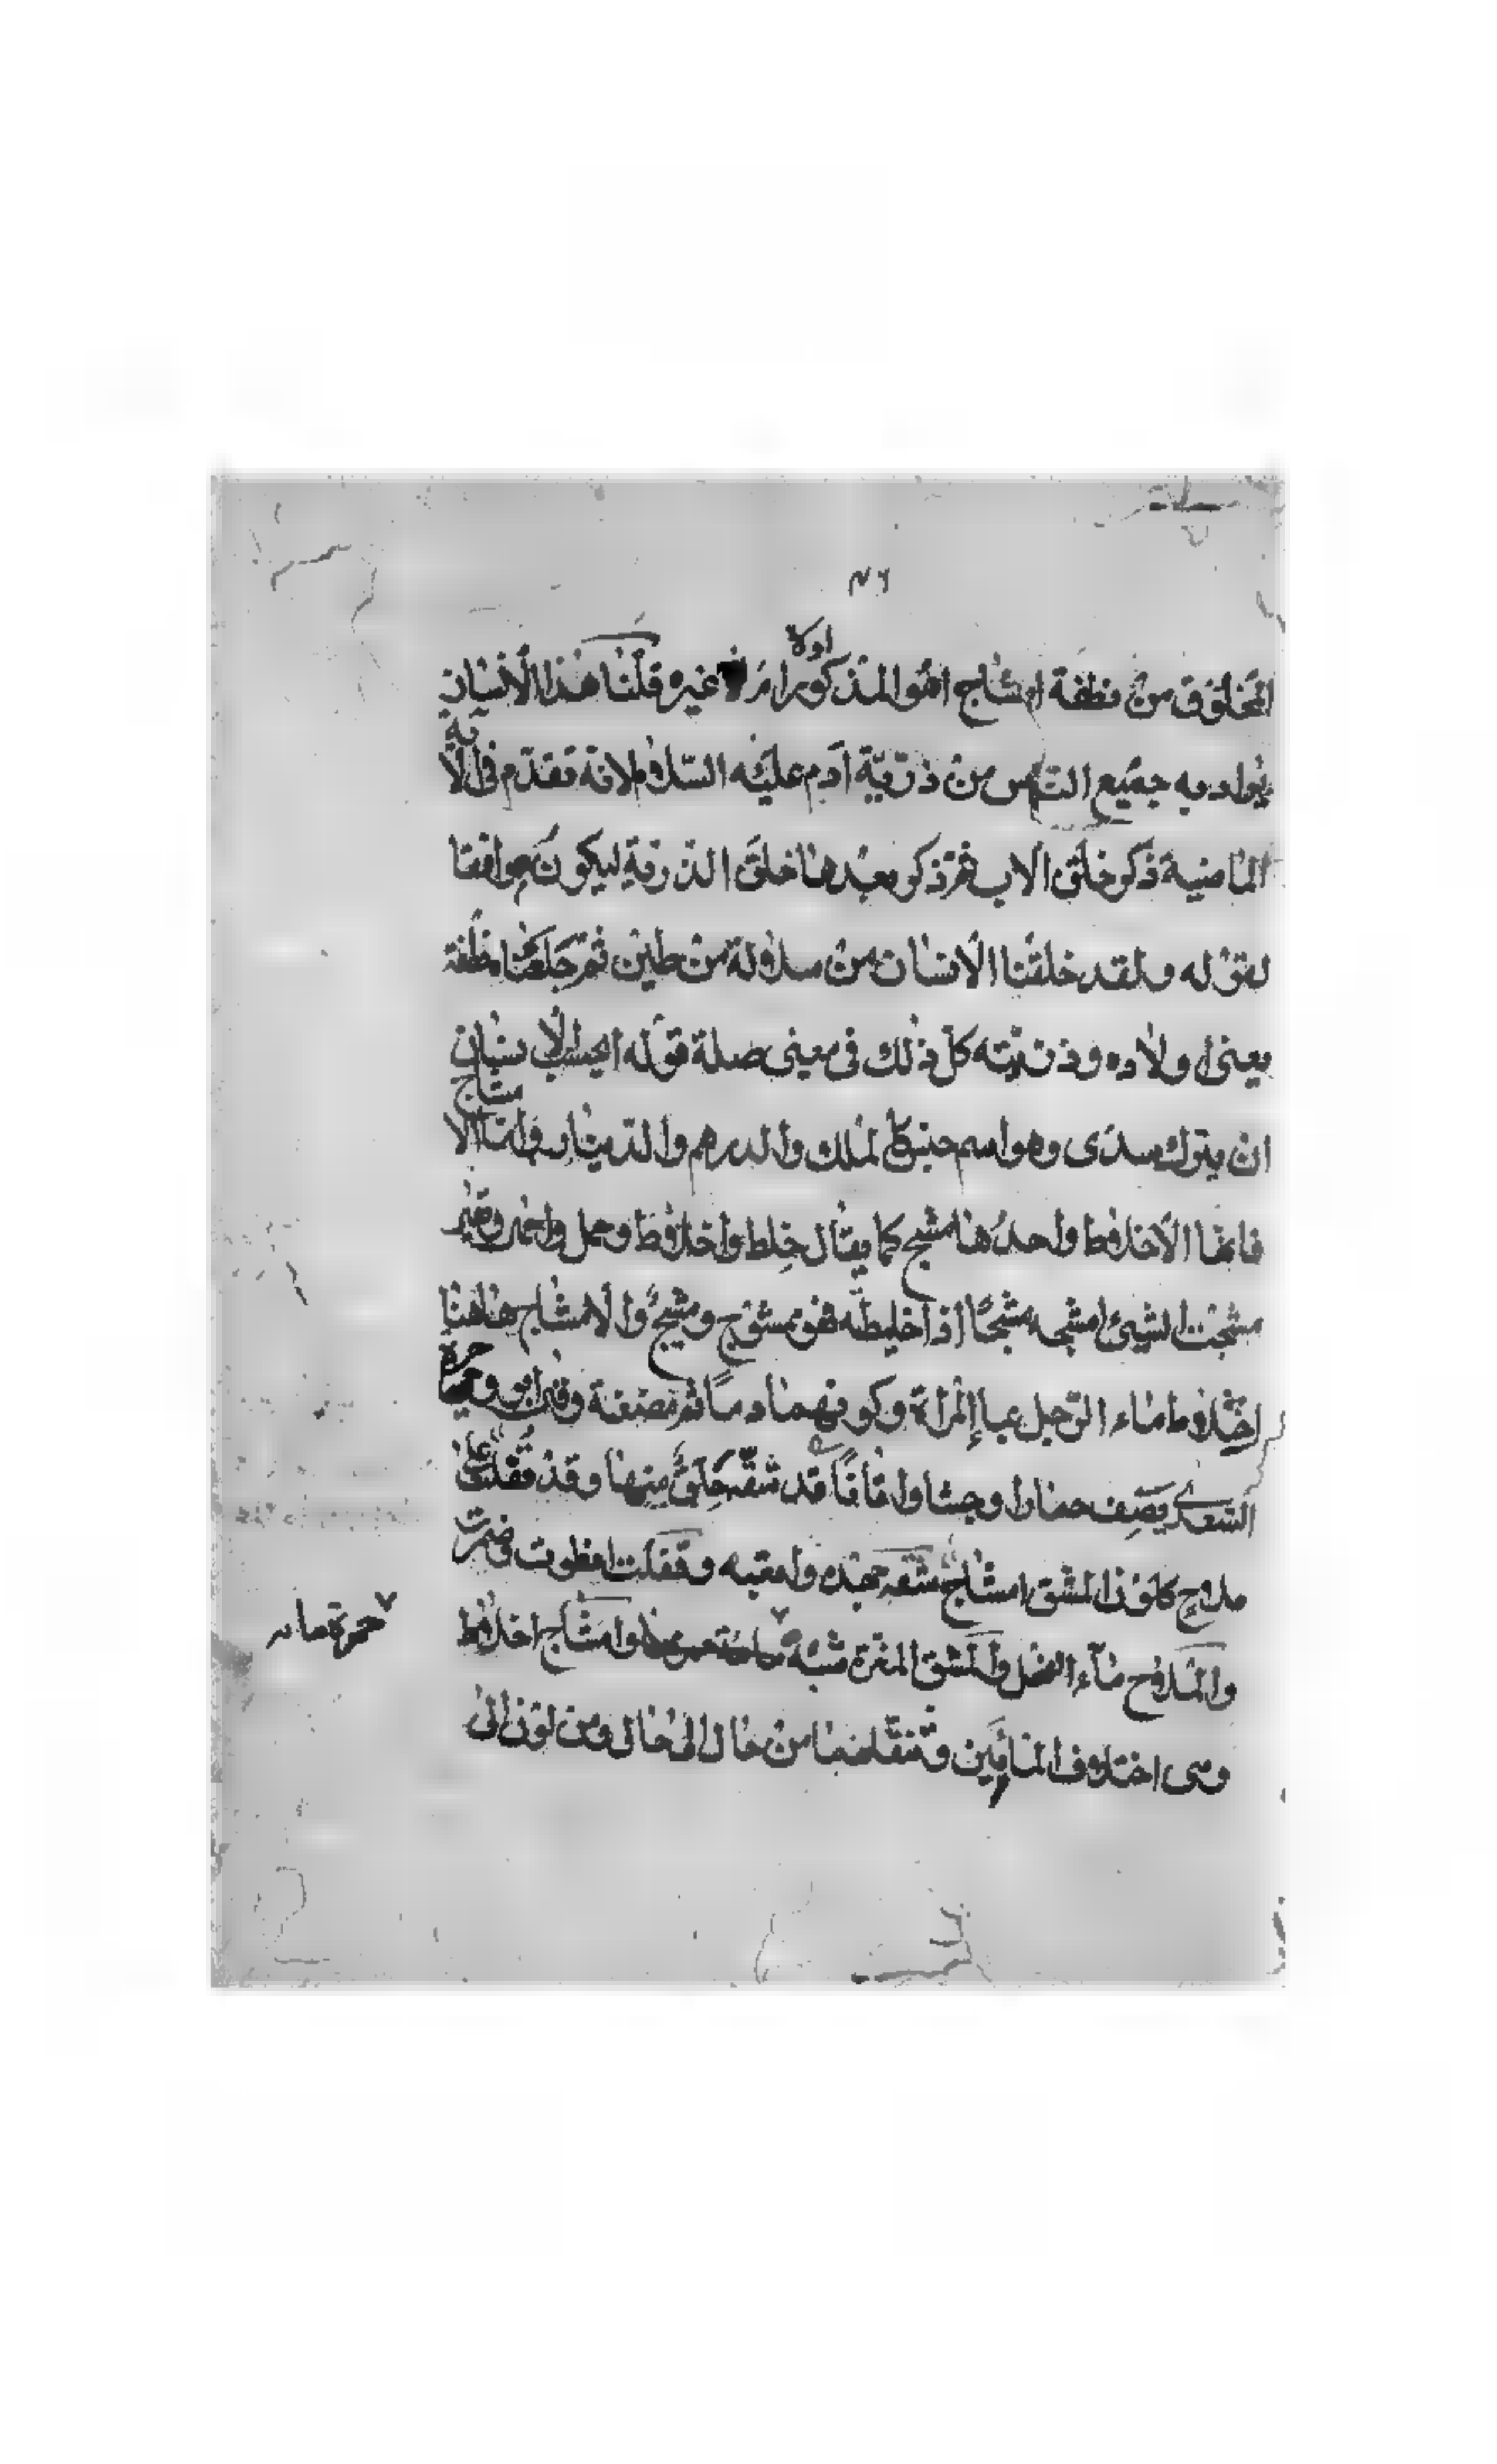 ٤٦
المخلوق من نطفة امشاج اهو المذكور اولا ام غيره قلنا هذا الانسان
يراد به جميع الناس من ذرّيّة آدم عليه السّلام لانه تقدّم في الآية
الماضية ذكر خلق الاب ثمّ ذكر بعدها خلق الذريّة ليكون موافقا
لقوله ولقد خلقنا الانسان من سلالة من طين ثمّ جعلناه نطفة
يعنى اولاده وذريّته كلّ ذلك فى معنى صلة قوله ايحسب الانسان
ان يترك سدًى وهو اسم جنس كالملك والدرهم والدّينار وامّا الامشاج
فانها الاخلاط واحدها مشج كما يقال خِلط واخلاط وحمل واحمال
مشجت الشيئ امشجه مشجًا اذا خلطته فهو ممشوج ومشيجٌ والامشاج هاهنا
اختلاط ماء الرّجل بماء المراة وكونهما دمًا ثم مضغة وقال ابو وجزة
السّعدى يصف حمارا وحشا واتانًا قد شقّه خلقٌ منها وقد قفلت على
ملاحٍ كلون المشق امشاج شقّه جهده واتعبه وقفلت انطوت وضمرت
والملاح ماء الفحل والمشق المغرة شبّه وامشاج اخلاط
وهى اختلاف المائين وتنقلهما من حال الى حال ومن لون الى
حمرة مائه